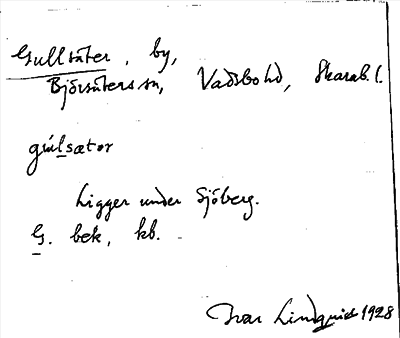 Gullsäter, by,
Björsäters sn, Vadsbo hd, Skarab. l.
gúlsætər
Ligger under Sjöberg.
G. bek, kb.
Ivar Lindquist 1928